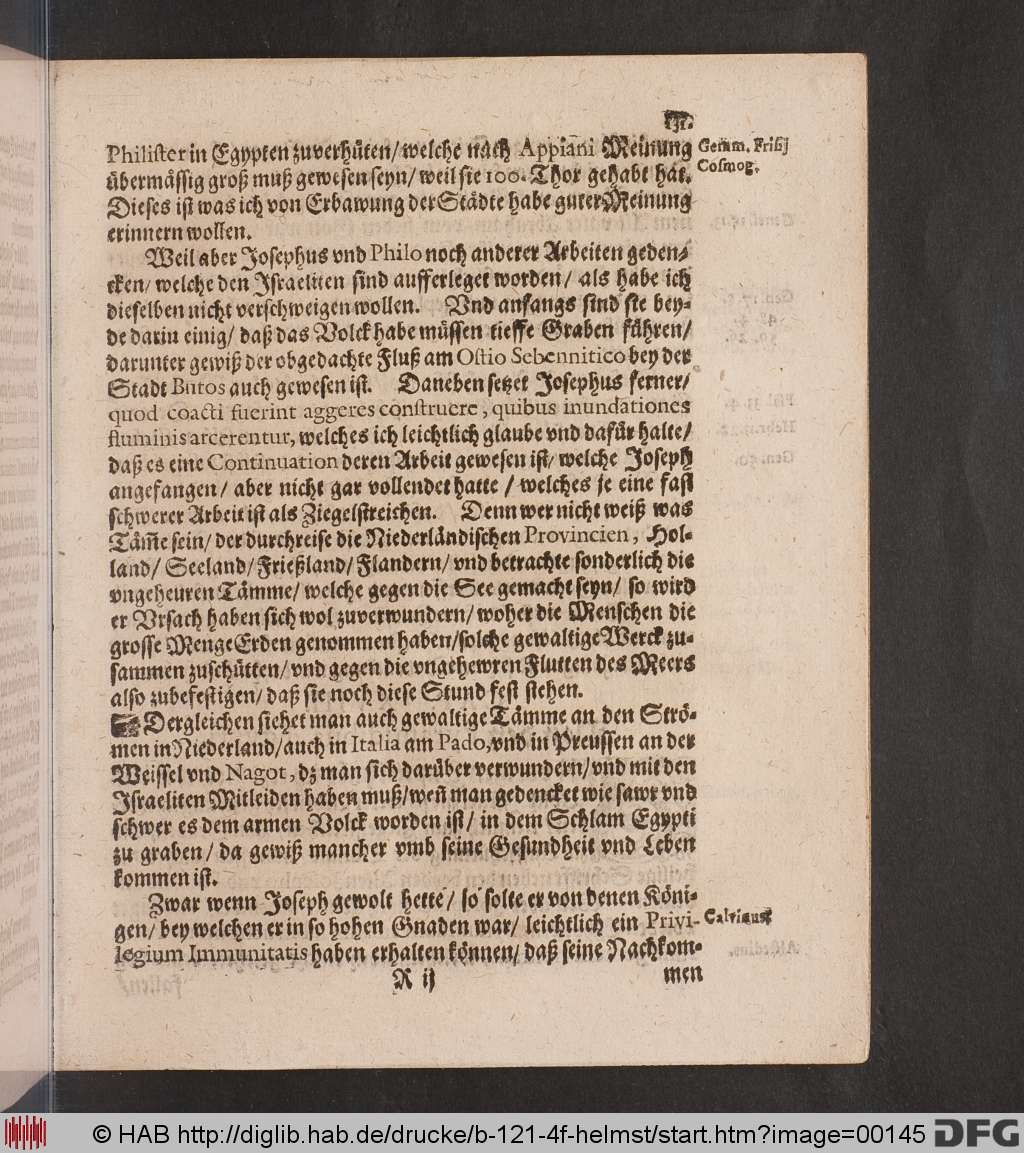 131.
Philister in Egypten zuverhüten/ welche nach Appiani Meinung
Gemm. Frisij
Cosmog.
übermässig groß muß gewesen seyn/ weil sie 100. Thor gehabt hat.
Dieses ist was ich von Erbawung der Städte habe guter Meinung
erinnern wollen.
Weil aber Josephus vnd Philo noch anderer Arbeiten geden-
cken/ welche den Israeliten sind aufferleget worden/ als habe ich
dieselben nicht verschweigen wollen. Vnd anfangs sind sie bey-
de dariu einig/ daß das Volck habe müssen tieffe Graben führen/
darunter gewiß der obgedachte Fluß am Ostio Sebennitico bey der
Stadt Butos auch gewesen ist. Daneben setzet Josephus ferner/
quod coacti fuerint aggeres construere, quibus inundationes
fluminis arcerentur, welches ich leichtlich glaube vnd dafür halte/
daß es eine Continuation deren Arbeit gewesen ist/ welche Joseph
angefangen/ aber nicht gar vollendet hatte / welches je eine fast
schwerer Arbeit ist als Ziegelstreichen. Denn wer nicht weiß was
Täm̃e sein/ der durchreise die Niederländischen Provincien, Hol-
land/ Seeland/ Frießland/ Flandern/ vnd betrachte sonderlich die
vngeheuren Tämme/ welche gegen die See gemacht seyn/ so wird
er Vrsach haben sich wol zuverwundern/ woher die Menschen die
grosse Menge Erden genommen haben/ solche gewaltige Werck zu-
sammen zuschütten/ vnd gegen die vngehewren Flutten des Meers
also zubefestigen/ daß sie noch diese Stund fest stehen.
☞ Dergleichen siehet man auch gewaltige Tämme an den Strö-
men in Niederland/ auch in Italia am Pado, vnd in Preussen an der
Weissel vnd Nagot, dz man sich darüber verwundern/ vnd mit den
Israeliten Mitleiden haben muß/ weñ man gedencket wie sawr vnd
schwer es dem armen Volck worden ist/ in dem Schlam Egypti
zu graben/ da gewiß mancher vmb seine Gesundheit vnd Leben
kommen ist.
Zwar wenn Joseph gewolt hette/ so solte er von denen Köni-
gen/ bey welchen er in so hohen Gnaden war/ leichtlich ein Privi-
Calvinus
legium Immunitatis haben erhalten können/ daß seine Nachkom-
R ij men
© HAB http://diglib.hab.de/drucke/b-121-4f-helmst/start.htm?image=00145 DFG